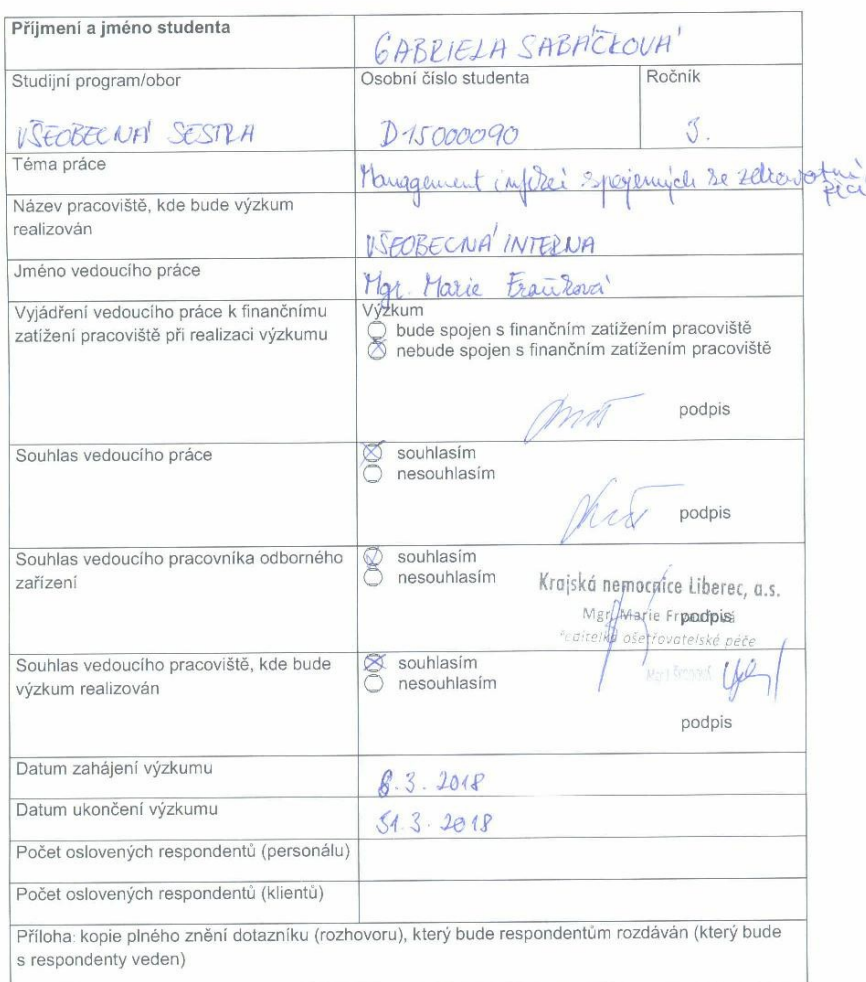 Příjmení a jméno studenta
GABRIELA SABÁČKOVÁ
Studijní program/obor
VŠEOBECNÁ SESTRA
Osobní číslo studenta
D15000090
Ročník
3.
Téma práce
Management infekcí spojených se zdravotní péčí
Název pracoviště, kde bude výzkum
realizován
VŠEOBECNÁ INTERNA
Jméno vedoucího práce
Mgr. Marie Froňková
Vyjádření vedoucího práce k finančnímu
zatížení pracoviště při realizaci výzkumu
Výzkum
bude spojen s finančním zatížením pracoviště
nebude spojen s finančním zatížením pracoviště
podpis
Souhlas vedoucího práce
souhlasím
nesouhlasím
podpis
Souhlas vedoucího pracovníka odborného
zařízení
souhlasím
nesouhlasím
Krajská nemocnice Liberec, a.s.
Mgr. Marie
podpis
ředitelka ošetřovatelské péče
Souhlas vedoucího pracoviště, kde bude
výzkum realizován
souhlasím
nesouhlasím
podpis
Datum zahájení výzkumu
6.3.2018
Datum ukončení výzkumu
31.3.2018
Počet oslovených respondentů (personálu)
Počet oslovených respondentů (klientů)
Příloha: kopie plného znění dotazníku (rozhovoru), který bude respondentům rozdáván (který bude
s respondenty veden)